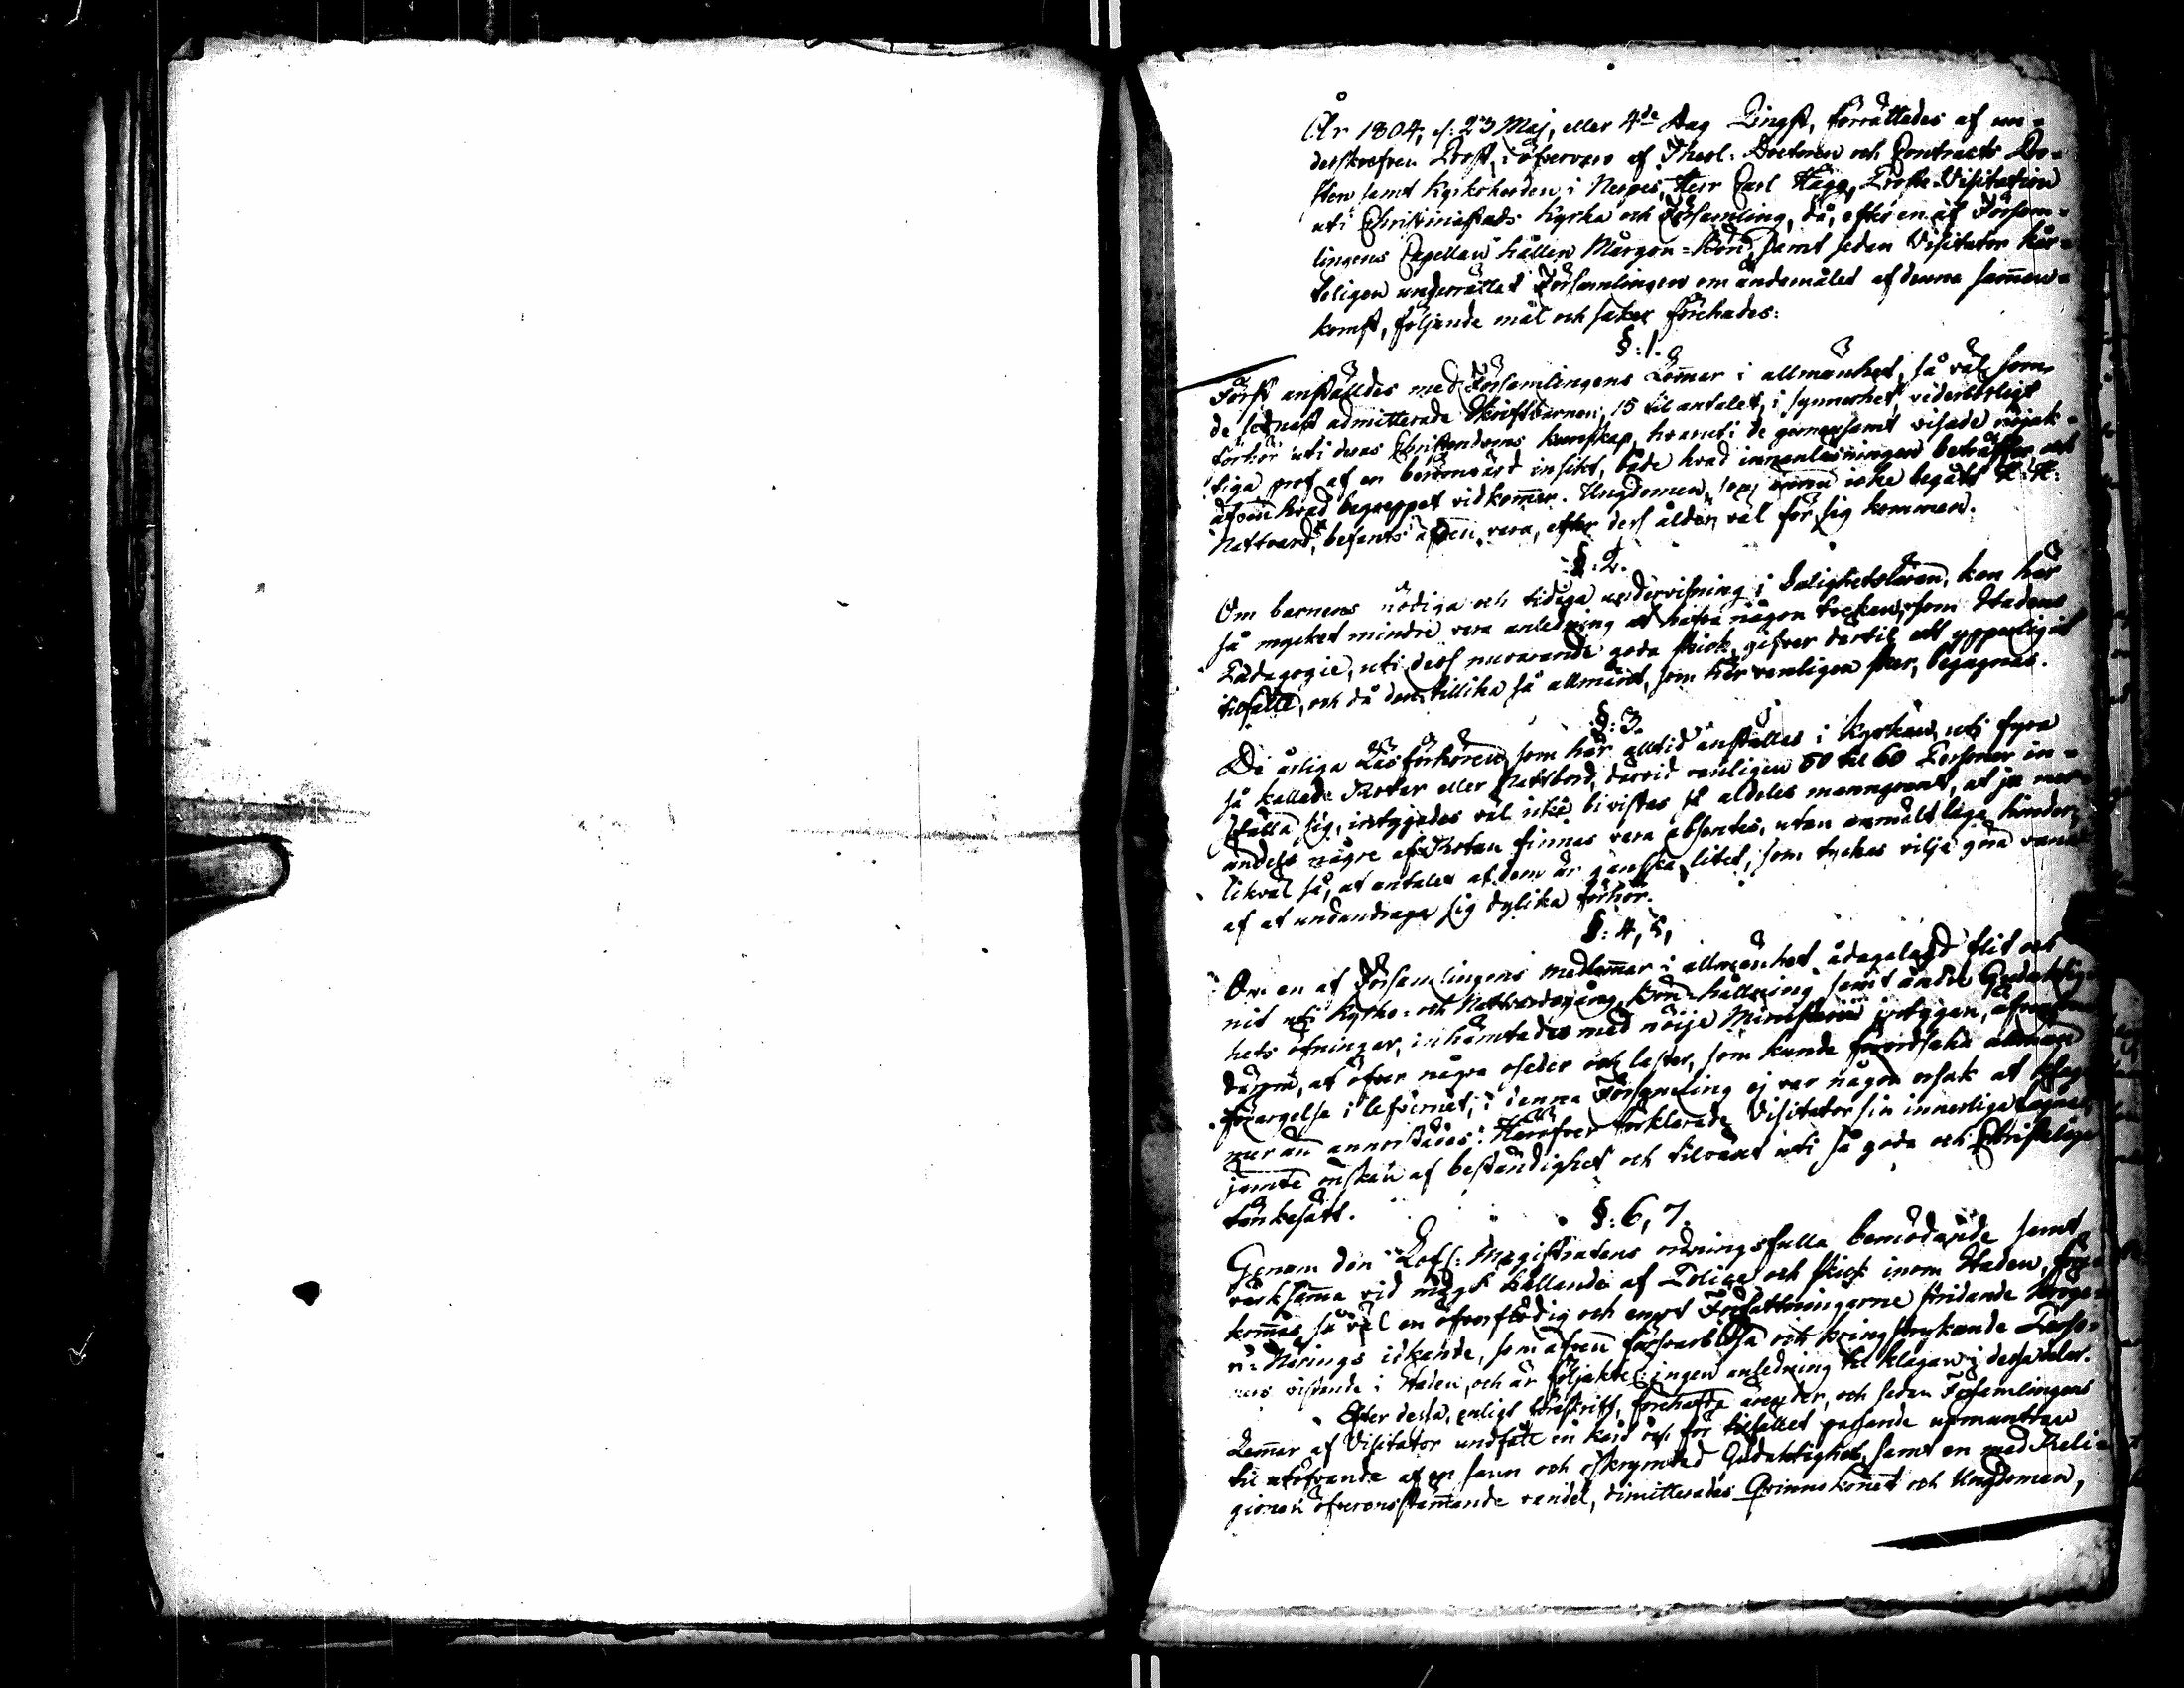 År 1804, d: 23 Maj, eller 4de Dag Pingst, förrättades af un-
derskrefven Prost, i öfvervaro af Theol: Doctoren och Contracts Pro-
sten samt Kyrkoherden i Nerpes, Herr Carl Hägg, Proste-Visitation
uti Christinæstads Kyrka och Församling, då, efter en af Försam-
lingens Capellan hållen Morgon-Bön, samt sedan Visitator kär-
teligen underrättat Församlingen om ändamålet af denna samman-
komst, följande mål och saker förehades:
§: 1.
Först anställdes med Församlingens Lemmar i allmänhet, så väl som
de sednast admitterade Skriftbarnen, 15 til antalet, i synnerhet, vederbörligt
förhör uti deras Christendoms kunskap, hvaruti de gemensamt visade nöjak-
tiga prof af en berömvärd insikt, både hvad innanläsningen beträffar och
äfven hvad begreppet vidkommer. Ungdomen, som ännu icke begått H. H.
Nattvard, befants äfven vara, efter dess ålder, väl för sig kommen.
§: 2.
Om barnens nödiga och tidiga undervisning i Salighetsläran, kan här
så mycket mindre vara anledning at hafva någon tvekan, som Stadens
Pædagogie, uti dess nuvarande goda skick, gifver dertil ett ypperligit
tilfälle, och då den tillika så allmänt, som här vanligen sker, begagnas.
§: 3.
De årliga Läsförhören, som här alltid anställas i Kyrkan, uti fyra
så kallade Rotar eller Nattbord, darvid vanligen 50 til 60 Personer in-
ställa sig, intygades väl icke bivistas så aldeles manngrant, at ju mer-
ändels någre af Rotan finnas vara absentes, utan anmält laga hinder,
likväl så, at antalet af dem är ganska litet, som tyckas vilja göra vana
af at undandraga sig dylika förhör.
§: 4, 5,
Om en af Församlingens medlemmar i allmänhet ådagalagd flit och
nit uti Kyrko- och Nattvardsgång, Bön-hållning samt andre Gudaktig-
hets öfningar, inhämtades med nöije Ministerii intygan,
därom, at öfver några oseder och laster, som kunde förordsaka allmän
förargelse i lefvernet, i denna Församling ej var någon orsak at klaga
mer än annorstädes. Häröfver förklarade Visitator sin innerliga
jemte önskan af beständighet och tilväxt uti så goda och Christeliga
tänkesätt.
§: 6, 7.
Genom den Lofl: Magistratens ordningsfulla bemödande samt
verksamma vid magt hållande af Police och skick inom Staden,
kommes så väl en öfverflödig och emot Författningarne stridande Kroge-
ri-Närings idkande, som äfven försvarslösa och kringstrykande Perso-
ners vistande i Staden, och är följakteligen ingen anledning til klagan i dessa delar.
Efter dessa, enligt föreskrift, förehafda ärender, och sedan Församlingens
Lemmar af Visitator undfått en kärlig för tilfället passande upmuntran
til utöfvande af en sann och oskrymtad Gudaktighet, samt en med Reli-
gionen öfverensstämmande vandel, dimitterades Qvinnokönet och Ungdomen,